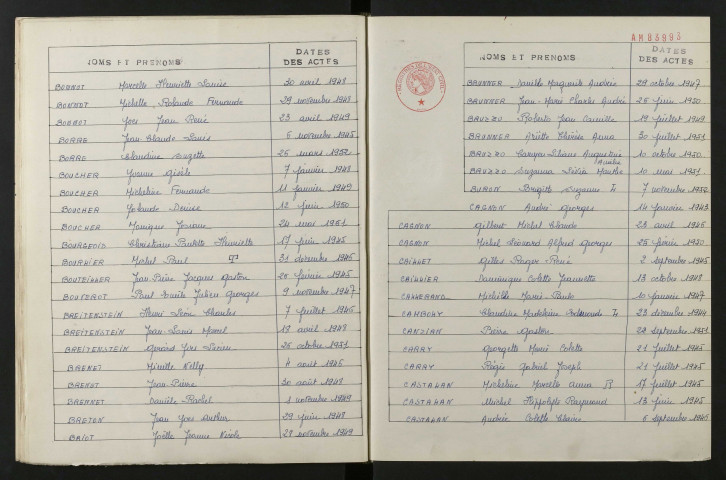 NOMS ET PRENOMS DATES DES ACTES
BONNOT Marcelle Henriette Louise 30 avril 1948
BONNOT Michelle Rolande Fernande 29 novembre 1948
BORROT Yves Jean René 23 avril 1949
BORRE Jean Claude Louis 5 novembre 1945
BORRE Claudine Suzette 26 mars 1952
BOUCHER Yvonne Gisèle 7 janvier 1948
BOUCHER Micheline Fernande 11 janvier 1949
BOUCHER Yolande Denise 12 juin 1950
BOUCHER Monique Josiane 24 mai 1951
BOURGEOIS Christiane Paulette Henriette 17 juin 1945
BOURLIER Michel Paul 31 décembre 1945
BOUTEILLER Jean Pierre Jacques Gaston 20 février 1945
BOUVEROT Paul Julien Georges 9 novembre 1947
BREITENSTEIN Henri Léon Charles 7 juillet 1946
BREITENSTEIN Jean Louis Marcel 18 avril 1948
BREITENSTEIN Gérard Yves Lucien 26 octobre 1951
BRENET Mireille Nelly 4 août 1946
BRENET Jean Pierre 30 août 1948
BRENNET Danièle Rachel 1 novembre 1949
BRETON Jean Yves Arthur 29 juin 1948
BRIOT Joëlle Jeanne Nicole 29 novembre 1949
AM85993
NOMS ET PRENOMS DATES DES ACTES
BRUNNER Danielle Marguerite Andrée 29 octobre 1947
BRUNNER Jean-Marie Charles André 26 juin 1950
BRUZZO Roberto Jean Camille 19 juillet 1949
BRUNNER Arlette Thérèse Anna 30 juillet 1951
BRUZZO Liliane Augustine 10 octobre 1950
BRUZZO Suzanne Marthe 10 mai 1951
BURON Brigitte Suzanne 7 novembre 1952
CAGNON André Georges 14 janvier 1943
CAGNON Gilbert Michel Claude 23 avril 1946
CAGNON Michel Léonard Alfred Georges 25 février 1950
CAILLET Gilles Roger René 2 septembre 1945
CAILLIER Dominique Colette Jeannette 13 octobre 1948
CALLERAND Michelle Marie Paule 10 janvier 1947
CAMBONY Claudine Madeleine 23 décembre 1944
CANZIAN Pierre Gaston 22 septembre 1951
CARRY Georgette Marie Colette 21 juillet 1945
CARRY Régis Gabriel Joseph 21 juillet 1945
CASTALAN Micheline Marcelle Anna R 17 juillet 1945
CASTALAN Michel Hippolyte Raymond 13 juin 1945
CASTALAN Andrée Colette Claire 6 septembre 1946